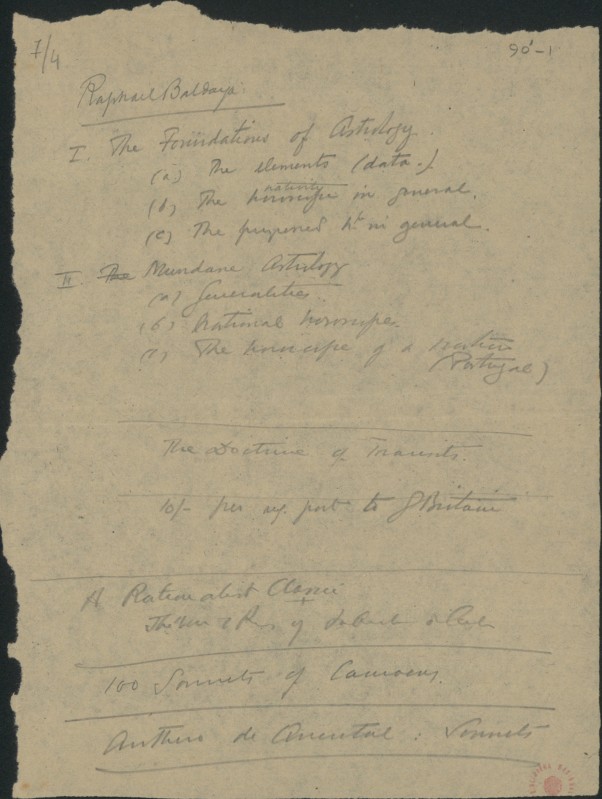 7/4
90¹-1
Raphael Baldaya:
I. The Foundations of Astrology.
(a) The elements (data.)
nativity
(b) The horoscope in general.
(c) The progressed h. in general.
II. The Mundane Astrology
(a) Generalities.
(b) National horoscopes.
(c) The horoscope of a nation
(Portugal)
The Doctrine of Transits.
10/- per reg. post to G Britain
A Rationalist Classic
The of
100 Sonnets of Camoens.
Anthero de Quental: Sonnets